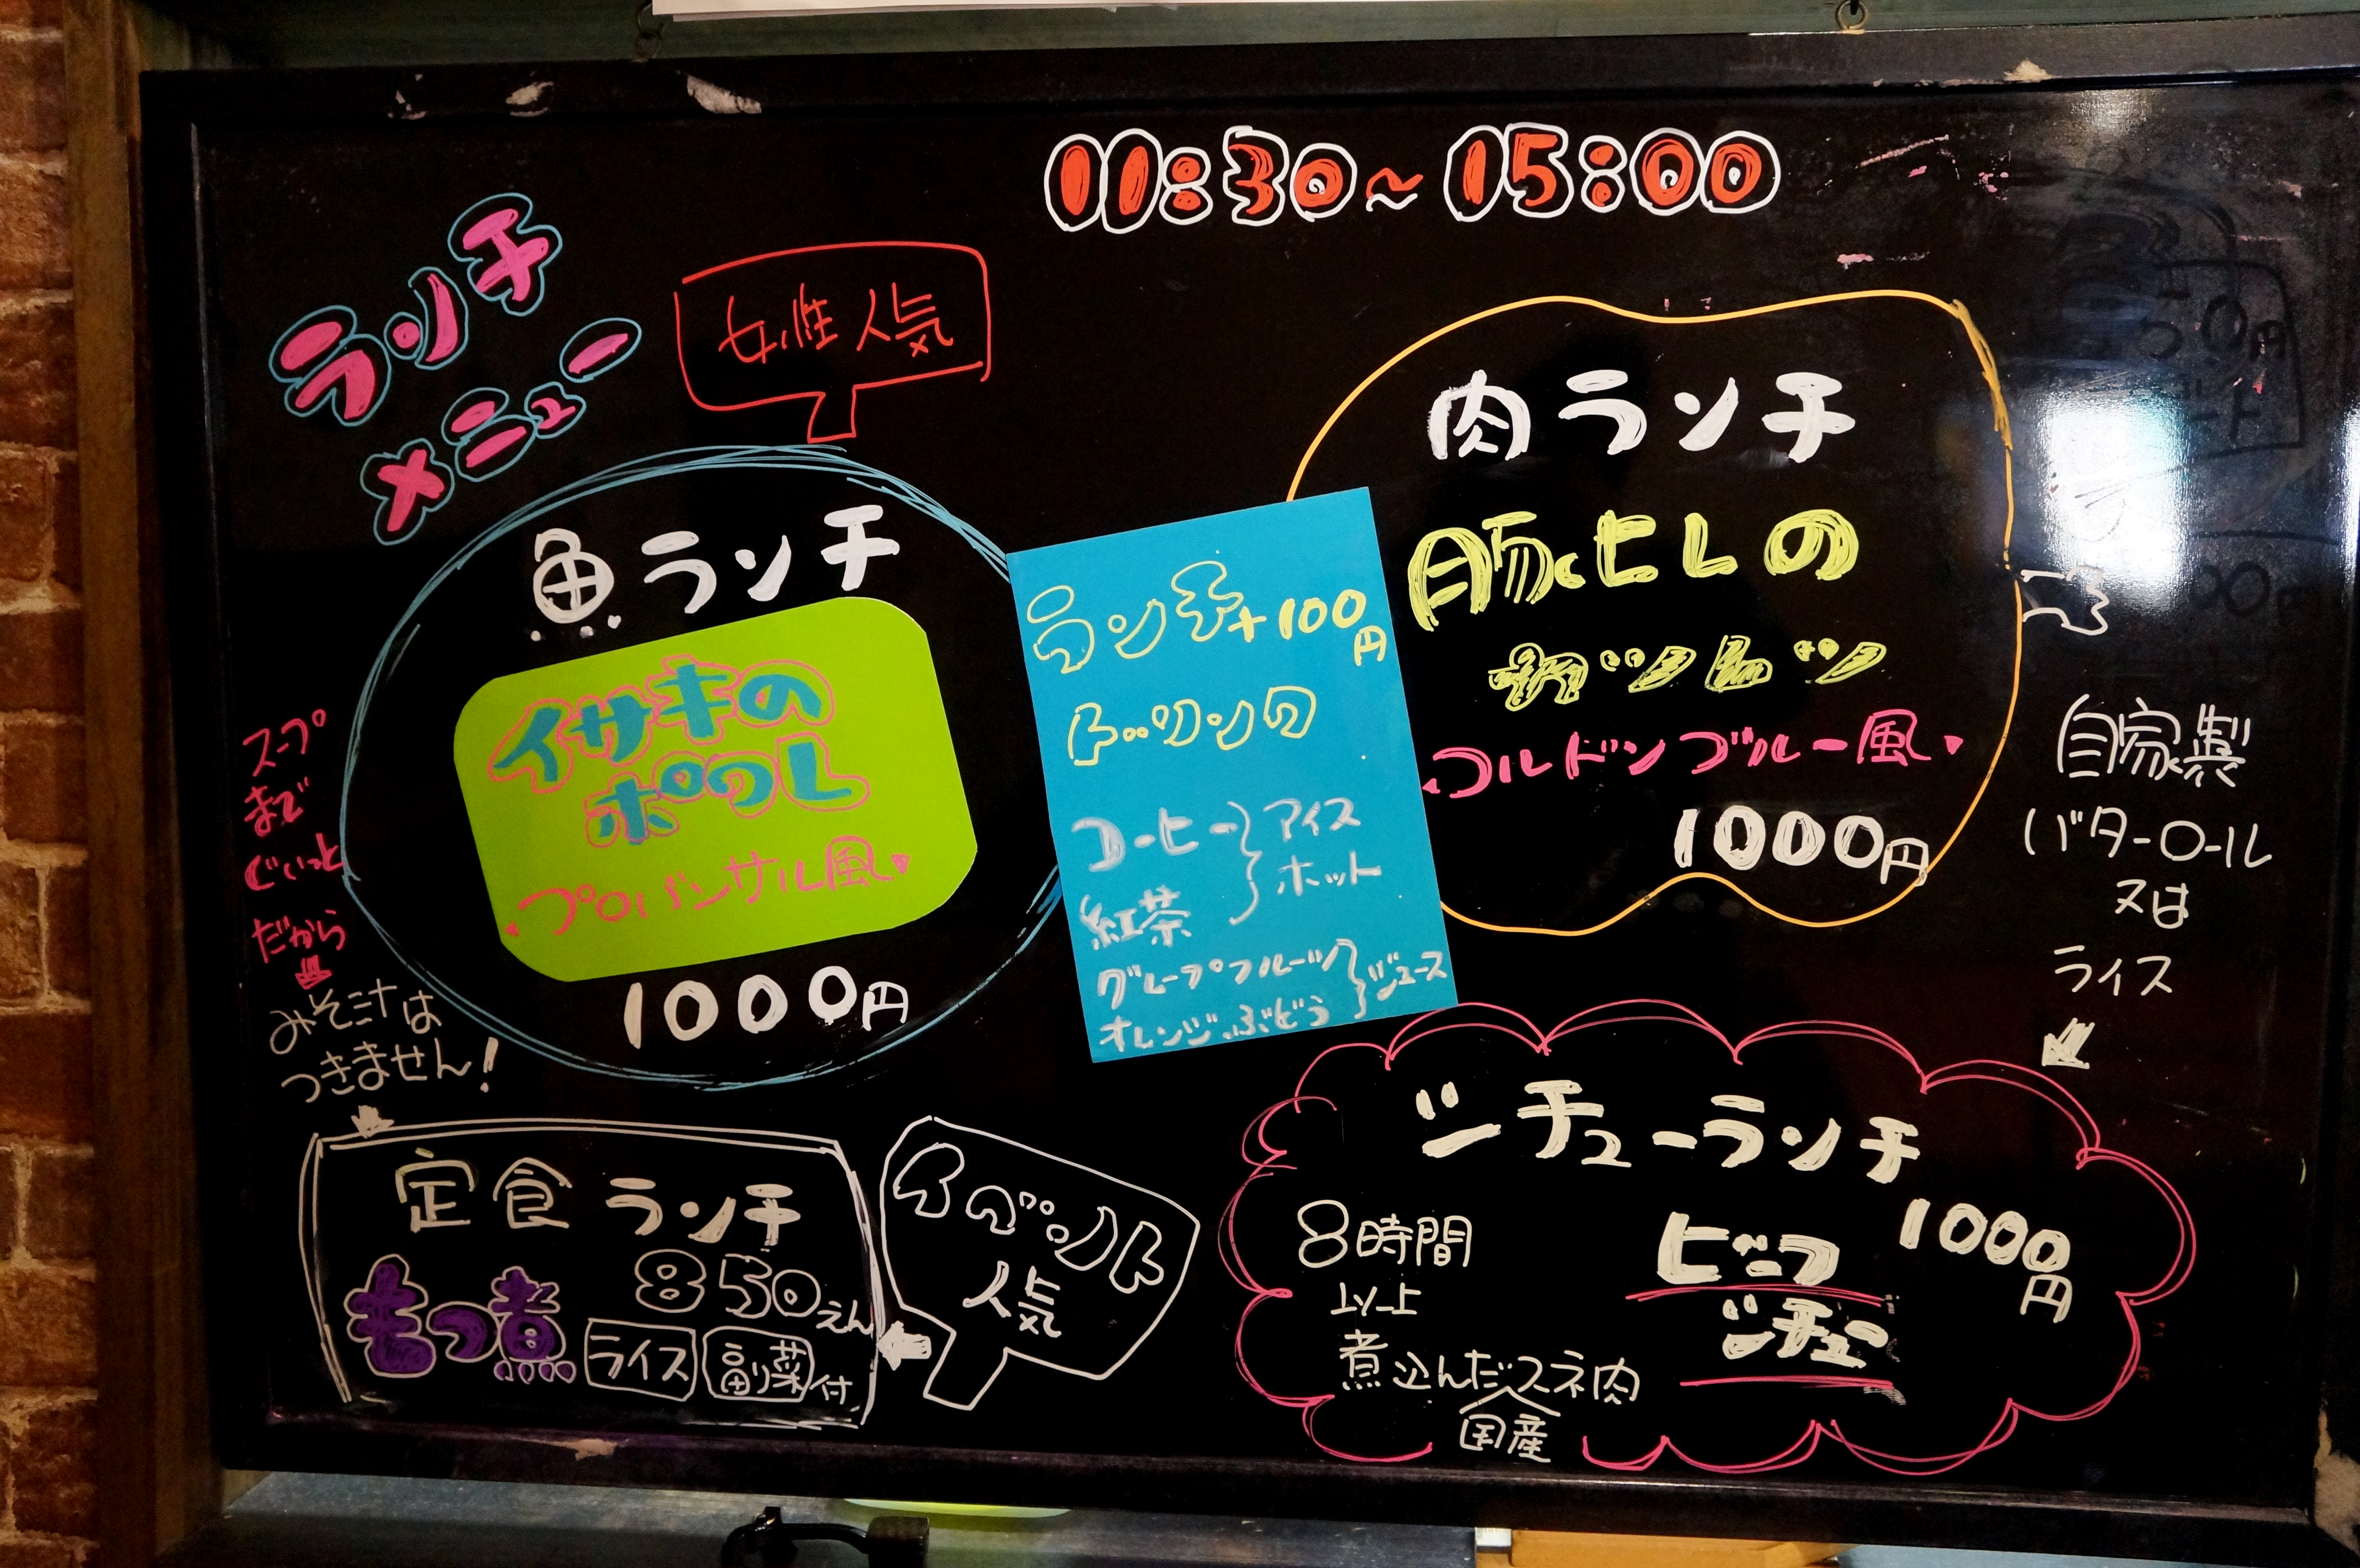 11:30~15:00
ランチ
メニュー
女性人気
魚ランチ
イサキの
ポワレ
プロバンサル風
1000円
ランチ+100円
ドリンク
コーヒー
紅茶
アイス
ホット
グレープフルーツ
オレンジ、ぶどう
ジュース
肉ランチ
豚ヒレの
カツレツ
コルドンブルー風
1000円
自家製
バターロール
又は
ライス
スープ
まで
ぐいっと
だから
みそ汁は
つきません!
定食ランチ
もつ煮
850えん
ライス
副菜付
イベント
人気
シチューランチ
8時間
以上
煮込んだスネ肉
国産
ビーフ
シチュー
1000円